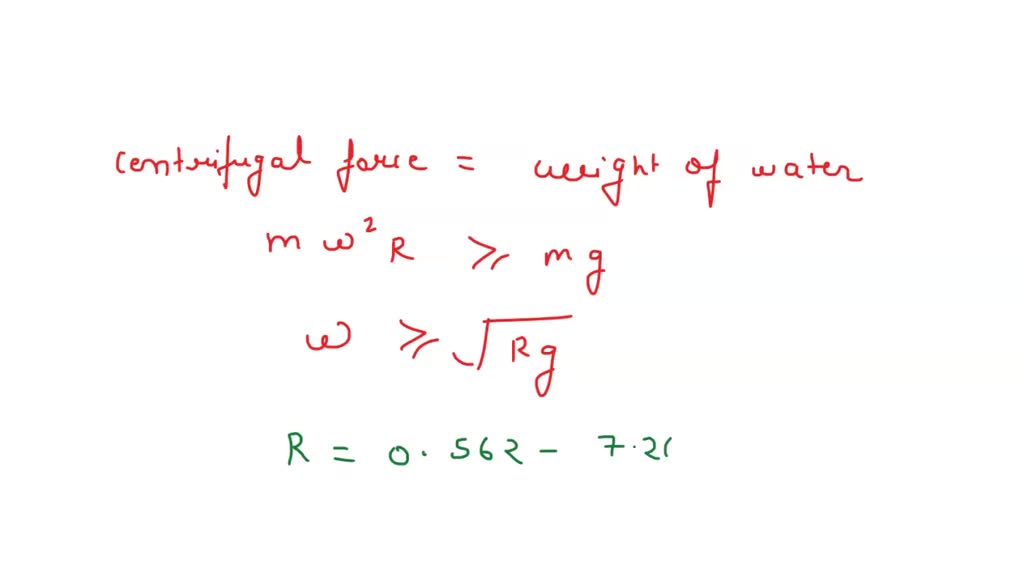 centrifugal force = weight of water
m ω² R ⩾ m g
ω ⩾ √Rg
R = 0.562 - 7.20